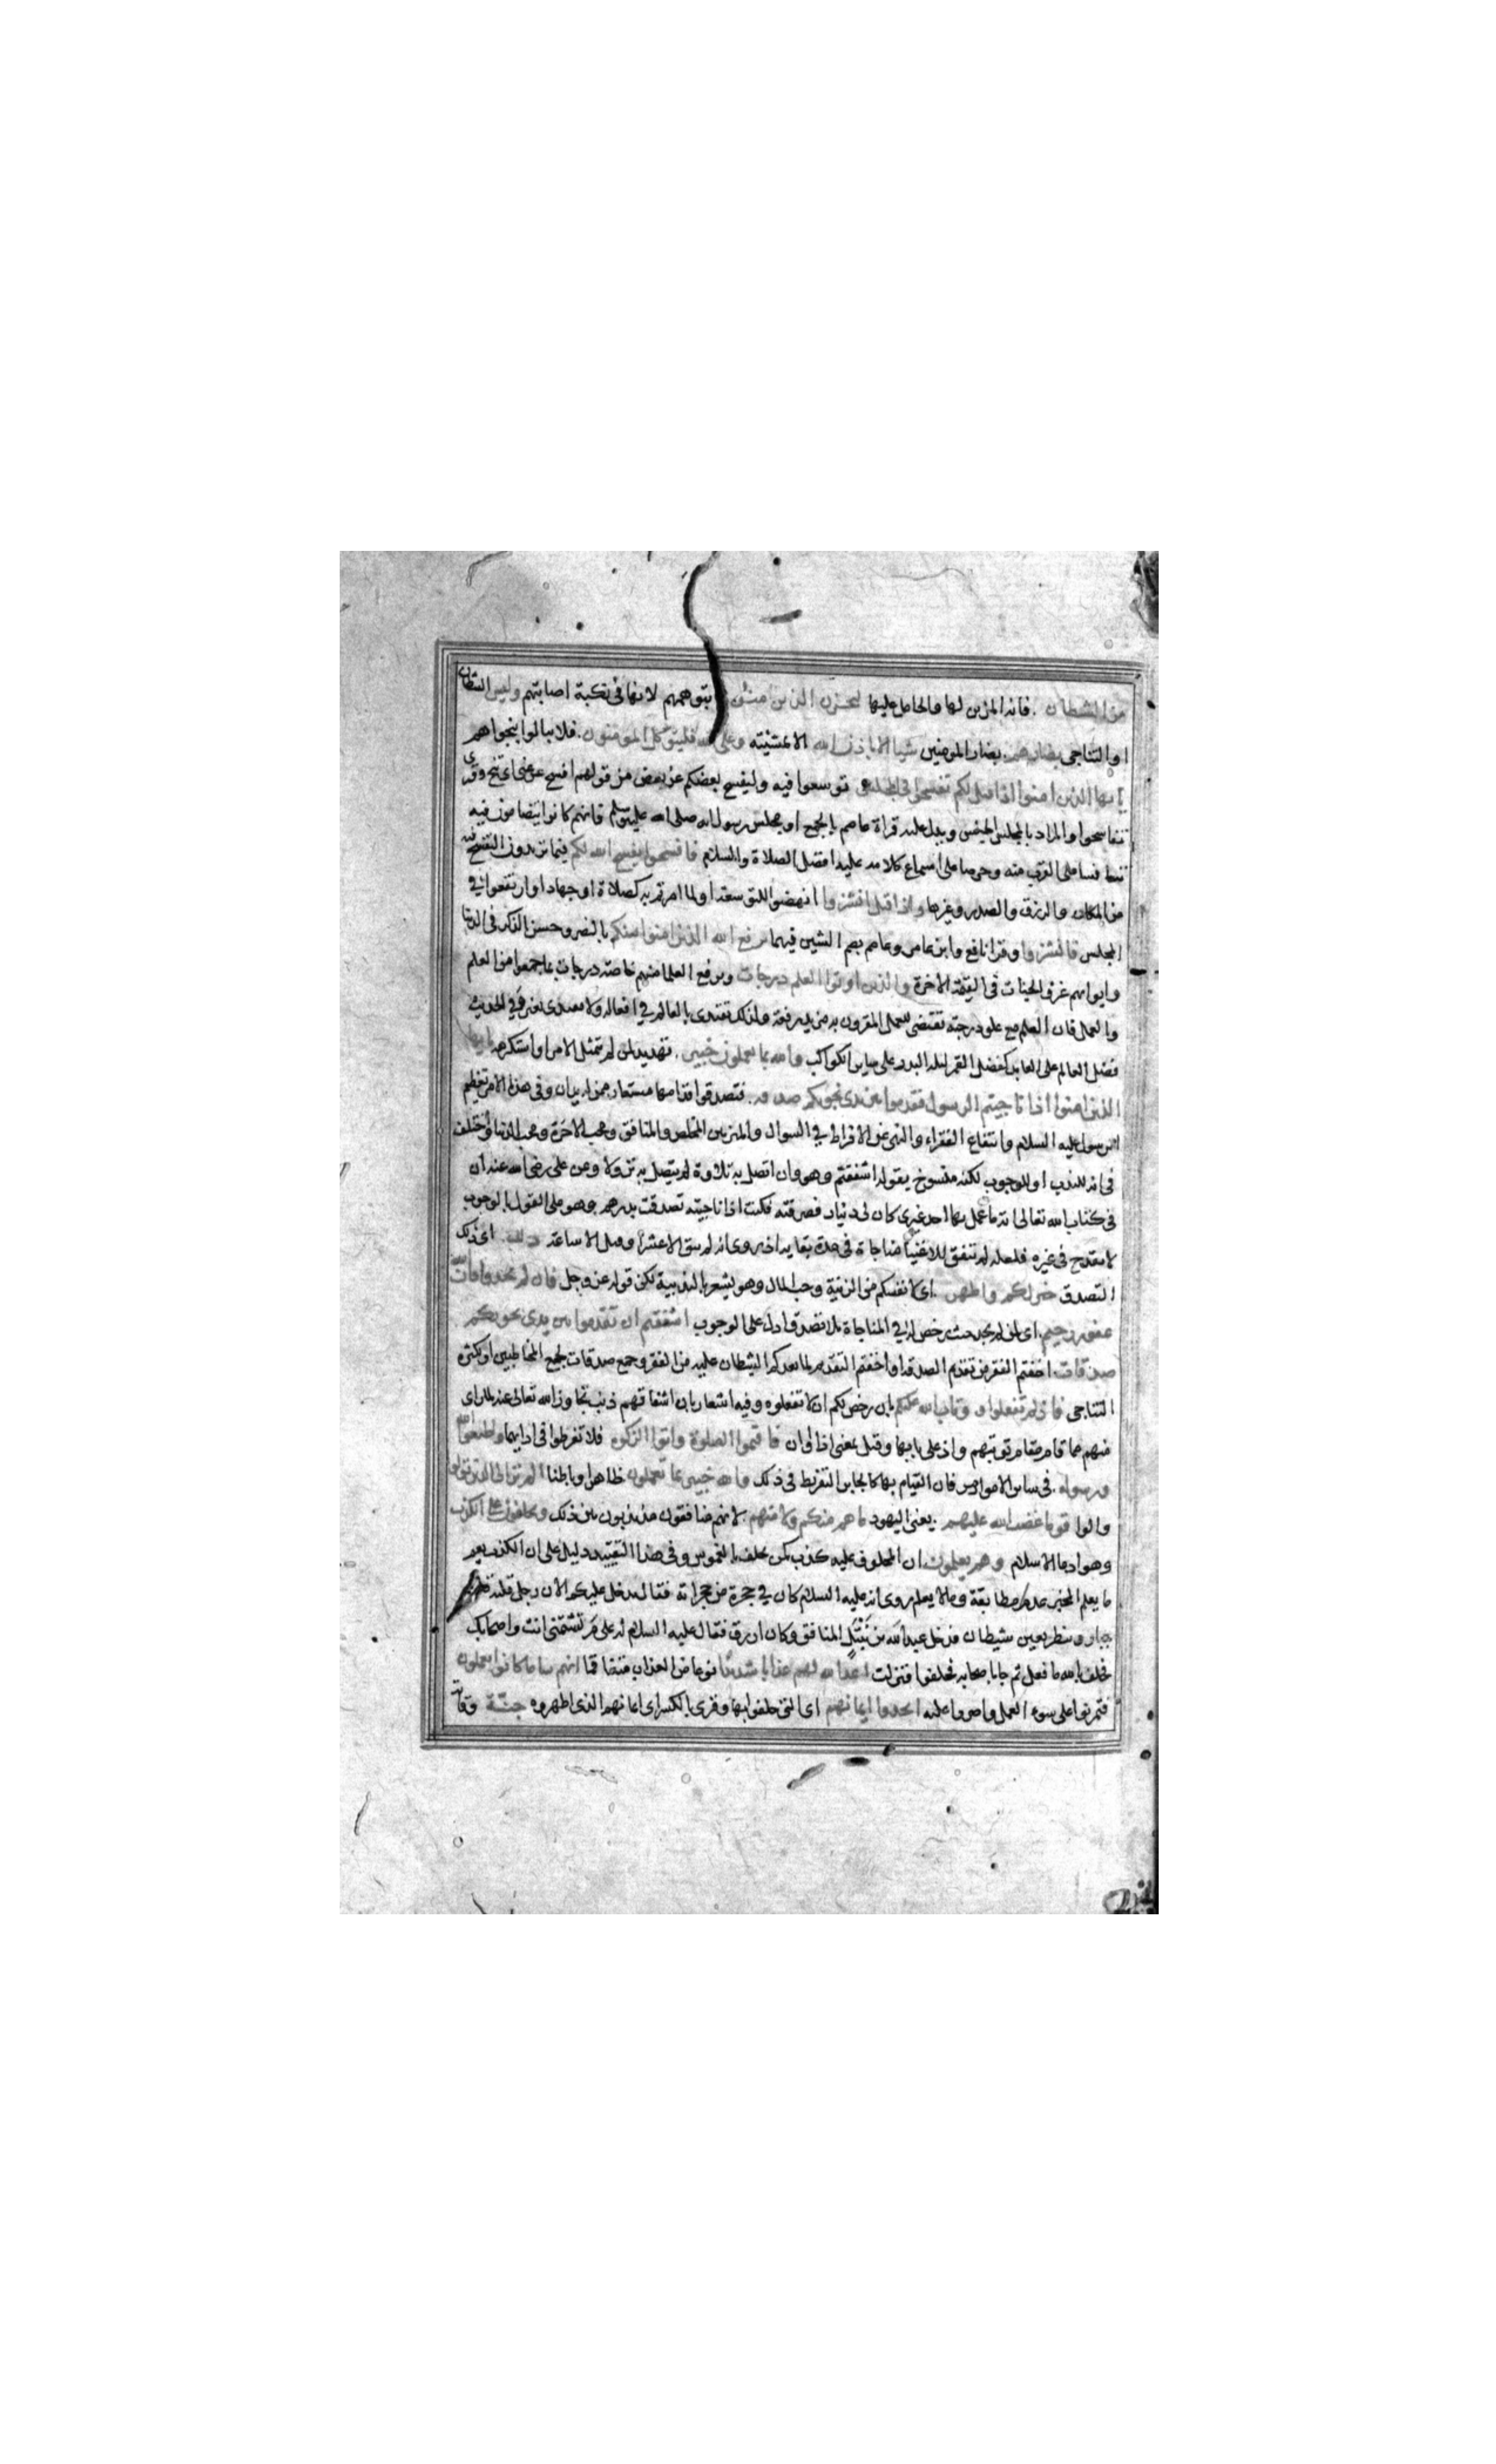 من الشيطان فانه المزين لها والحامل عليها ليحزن الذين امنوا بتوهمهم لانها في نكبة اصابتهم وليس الشيطان
او التناجي بضارهم بضار المومنين شيا الا باذن الله الا بمشيته وعلى الله فليتوكل المومنون فلا يبالوا بنجواهم
يا ايها الذين امنوا اذا قيل لكم تفسحوا في المجلس توسعوا فيه وليفسح بعضكم عن بعض من قولهم افسح عني اي تنح وقرى
تفاسحوا والمراد بالمجلس الجنس ويدل عليه قراة عاصم بالجمع او مجلس رسول الله صلى الله عليه وسلم فانهم كانوا يتضامون فيه
تنافسا على القرب منه وحرصا على استماع كلامه عليه افضل الصلاة والسلام فافسحوا يفسح الله لكم فيما تريدون التفسح فيه
من المكان والرزق والصدر وغيرها واذا قيل انشزوا انهضوا للتوسعة او لما امرتم به كصلاة او جهاد او ارتفعوا في
المجلس فانشزوا وقرا نافع وابن عامر وعاصم بضم الشين فيهما يرفع الله الذين امنوا منكم بالنصر وحسن الذكر في الدنيا
وايوائهم غرف الجنات في الاخرة والذين اوتوا العلم درجات ويرفع العلما منهم خاصة درجات بما جمعوا من العلم
والعمل فان العلم مع علو درجته يقتضي للعمل المقرون به مزيد رفعة ولذلك يقتدى بالعالم في افعاله ولا يقتدى بغيره وفي الحديث
فضل العالم على العابد كفضل القمر ليلة البدر على ساير الكواكب والله بما تعملون خبير تهديد لمن لم يتمثل الامر او استكرهه يا ايها
الذين امنوا اذا ناجيتم الرسول فقدموا بين يدي نجويكم صدقة فتصدقوا قدامها مستعار ممن له يدان وفي هذا الامر تعظيم
الرسول عليه السلام وانتفاع الفقراء والنهي عن الافراط في السوال والميز بين المخلص والمنافق ومحب الاخرة ومحب الدنيا واختلف
في انه للندب او للوجوب لكنه منسوخ بقوله اشفقتم وهو وان اتصل به تلاوة لم يتصل به نزولا وعن علي رضي الله عنه ان
في كتاب الله تعالى اية ما عمل بها احد غيري كان لي دينار فصرفته فكنت اذا ناجيته تصدقت بدرهم وهو على القول بالوجوب
لا يقدح في غيره فلعله لم يتفق للاغنيا مناجاة في مدة بقايه اذ روي انه لم يبق الا عشرا وقيل الا ساعة ذلك اي ذلك
التصدق خير لكم واطهر اي لانفسكم من الريبة وحب المال وهو يشعر بالندبية لكن قوله عز وجل فان لم تجدوا فان الله
غفور رحيم اي لمن لم يجد حيث رخص له في المناجاة بلا تصدق ادل على الوجوب اشفقتم ان تقدموا بين يدي نجويكم
صدقات اخفتم الفقر من تقديم الصدقة او اخفتم التقديم لما يعدكم الشيطان عليه من الفقر وجمع صدقات لجمع المخاطبين او لكثرة
التناجي فاذ لم تفعلوا وتاب الله عليكم بان رخص لكم ان لا تفعلوه وفيه اشعار بان اشفاقهم ذنب تجاوز الله تعالى عنه لما راى
منهم مما قام مقام توبتهم واذ على بابها وقيل بمعنى اذا او ان فاقيموا الصلوة واتوا الزكوة فلا تفرطوا في ادايهما واطيعوا الله
ورسوله في ساير الاوامر فان القيام بها كالجابر للتفريط في ذلك والله خبير بما تعملون ظاهرا وباطنا الم تر الى الذين تولوا
والوا قوما غضب الله عليهم يعني اليهود ما هم منكم ولا منهم لانهم منافقون مذبذبون بين ذلك ويحلفون على الكذب
وهو ادعا الاسلام وهم يعلمون ان المحلوف عليه كذب كمن يحلف بالغموس وفي هذا التقييد دليل على ان الكذب يعم
ما يعلم المخبر عدم مطابقة وما لا يعلم روي انه عليه السلام كان في حجرة من حجراته فقال يدخل عليكم الان رجل قلبه قلب
جبار وينظر بعين شيطان فدخل عبد الله بن نبتل المنافق وكان ازرق فقال عليه السلام له علام تشتمني انت واصحابك
فحلف بالله ما فعل ثم جا باصحابه فحلفوا فنزلت اعد الله لهم عذابا شديدا نوعا من العذاب متفاقما انهم سا ما كانوا يعملون
فتمرنوا على سوء العمل واصروا عليه اتخذوا ايمانهم اي التي حلفوا بها وقرى بالكسر اي ايمانهم الذي اظهروه جنة وقاية